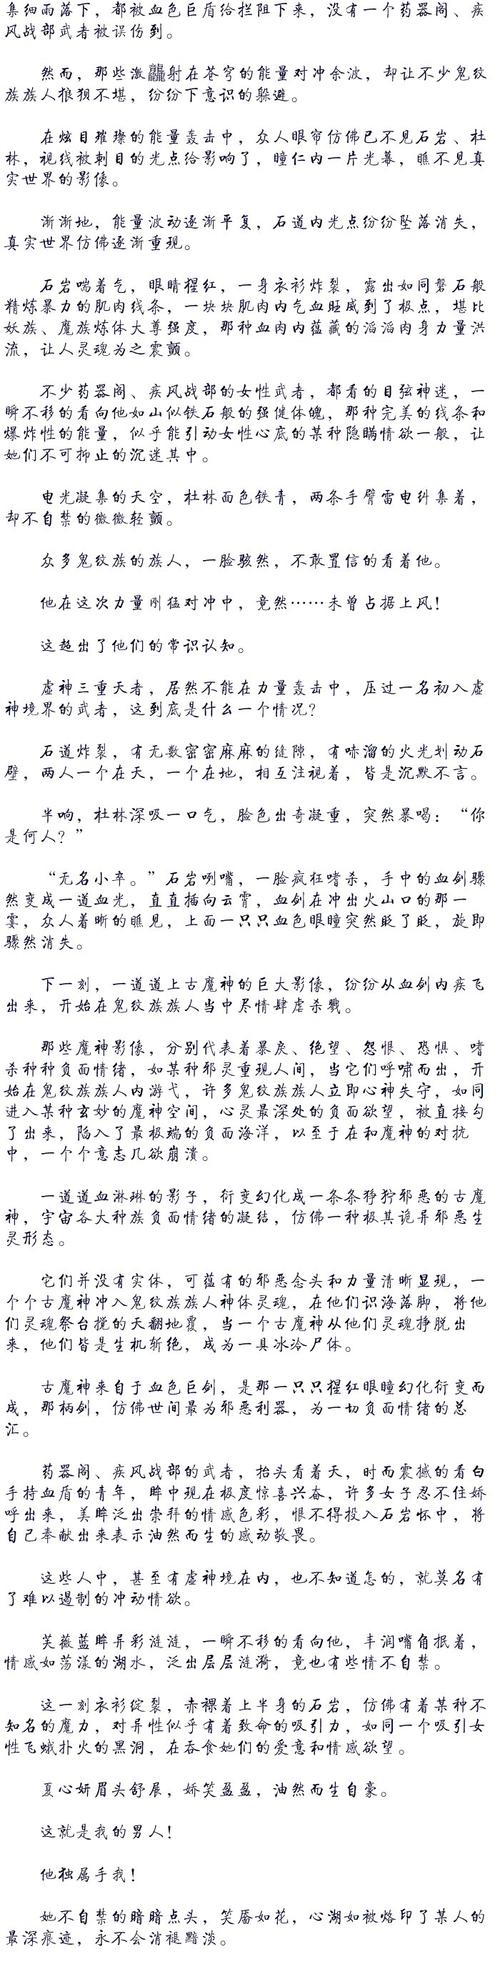 集细雨落下，都被血色巨盾给拦阻下来，没有一个药器阁、疾
风战部武者被误伤到。
然而，那些激射在苍穹的能量对冲余波，却让不少鬼纹
族族人狼狈不堪，纷纷下意识的躲避。
在炫目璀璨的能量轰击中，众人眼帘仿佛已不见石岩、杜
林，视线被刺目的光点给影响了，瞳仁内一片光幕，瞧不见真
实世界的影像。
渐渐地，能量波动逐渐平复，石道内光点纷纷坠落消失，
真实世界仿佛逐渐重现。
石岩喘着气，眼睛猩红，一身衣衫炸裂，露出如同磐石般
精炼暴力的肌肉线条，一块块肌肉内气血旺盛到了极点，堪比
妖族、魔族炼体大尊强度，那种血肉内蕴藏的滔滔肉身力量洪
流，让人灵魂为之震颤。
不少药器阁、疾风战部的女性武者，都看的目弦神迷，一
瞬不移的看向他如山似铁石般的强健体魄，那种完美的线条和
爆炸性的能量，似乎能引动女性心底的某种隐瞒情欲一般，让
她们不可抑止的沉迷其中。
电光凝集的天空，杜林面色铁青，两条手臂雷电纠集着，
却不自禁的微微轻颤。
众多鬼纹族的族人，一脸骇然，不敢置信的看着他。
他在这次力量刚猛对冲中，竟然……未曾占据上风！
这超出了他们的常识认知。
虚神三重天者，居然不能在力量轰击中，压过一名初入虚
神境界的武者，这到底是什么一个情况？
石道炸裂，有无数密密麻麻的缝隙，有哧溜的火光划动石
壁，两人一个在天，一个在地，相互注视着，皆是沉默不言。
半响，杜林深吸一口气，脸色出奇凝重，突然暴喝：“你
是何人？”
“无名小卒。”石岩咧嘴，一脸疯狂嗜杀，手中的血剑骤
然变成一道血光，直直插向云霄，血剑在冲出火山口的那一
霎，众人着晰的瞧见，上面一只只血色眼瞳突然眨了眨，旋即
骤然消失。
下一刻，一道道上古魔神的巨大影像，纷纷从血剑内疾飞
出来，开始在鬼纹族族人当中尽情肆虐杀戮。
那些魔神影像，分别代表着暴戾、绝望、怨恨、恐惧、嗜
杀种种负面情绪，如某种邪灵重现人间，当它们呼啸而出，开
始在鬼纹族族人内游弋，许多鬼纹族族人立即心神失守，如同
进入某种玄妙的魔神空间，心灵最深处的负面欲望，被直接勾
了出来，陷入了最极端的负面海洋，以至于在和魔神的对抗
中，一个个意志几欲崩溃。
一道道血淋淋的影子，衍变幻化成一条条狰狞邪恶的古魔
神，宇宙各大种族负面情绪的凝结，仿佛一种极其诡异邪恶生
灵形态。
它们并没有实体，可蕴有的邪恶念头和力量清晰显现，一
个个古魔神冲入鬼纹族族人神体灵魂，在他们识海落脚，将他
们灵魂祭台搅的天翻地覆，当一个古魔神从他们灵魂挣脱出
来，他们皆是生机斩绝，成为一具冰冷尸体。
古魔神来自于血色巨剑，是那一只只猩红眼瞳幻化衍变而
成，那柄剑，仿佛世间最为邪恶利器，为一切负面情绪的总
汇。
药器阁、疾风战部的武者，抬头看着天，时而震撼的看向
手持血盾的青年，眸中现在极度惊喜兴奋，许多女子忍不住娇
呼出来，美眸泛出崇拜的情感色彩，恨不得投入石岩怀中，将
自己奉献出来表示油然而生的感动敬畏。
这些人中，甚至有虚神境在内，也不知道怎的，就莫名有
了难以遏制的冲动情欲。
芙薇蓝眸异彩涟涟，一瞬不移的看向他，丰润嘴角抿着，
情感如荡漾的湖水，泛出层层涟漪，竟也有些情不自禁。
这一刻衣衫绽裂，赤裸着上半身的石岩，仿佛有着某种不
知名的魔力，对异性似乎有着致命的吸引力，如同一个吸引女
性飞蛾扑火的黑洞，在吞食她们的爱意和情感欲望。
夏心妍眉头舒展，娇笑盈盈，油然而生自豪。
这就是我的男人！
他独属于我！
她不自禁的暗暗点头，笑靥如花，心湖如被烙印了某人的
最深痕迹，永不会消褪黯淡。